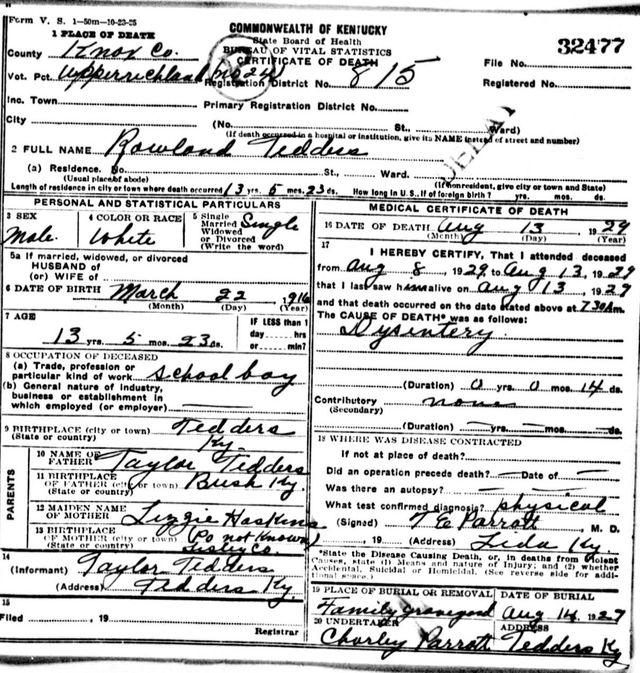 Form V. S. 1—50m—10-23-25
COMMONWEALTH OF KENTUCKY
State Board of Health
BUREAU OF VITAL STATISTICS
CERTIFICATE OF DEATH
1 PLACE OF DEATH
County Knox Co.
File No. 32477
Vot. Pct. No 24
Registration District No. 815
Registered No.
Inc. Town
Primary Registration District No.
City
(No. St., Ward)
(If death occurred in a hospital or institution, give its NAME instead of street and number)
DELAY
2 FULL NAME Rowland Tedders
(a) Residence. No. St., Ward.
(Usual place of abode) (If nonresident, give city or town and State)
Length of residence in city or town where death occurred 13 yrs. 5 mos. 23 ds. How long in U. S., if of foreign birth? yrs. mos. ds.
PERSONAL AND STATISTICAL PARTICULARS
3 SEX
Male
4 COLOR OR RACE
White
5 Single
Married
Widowed
or Divorced
(Write the word)
Single
5a If married, widowed, or divorced
HUSBAND of
(or) WIFE of
6 DATE OF BIRTH March 22, 1916
(Month) (Day) (Year)
7 AGE
13 yrs. 5 mos. 23 ds.
IF LESS than 1
day hrs
or min.
8 OCCUPATION OF DECEASED
(a) Trade, profession or
particular kind of work school boy
(b) General nature of industry,
business or establishment in
which employed (or employer)
9 BIRTHPLACE (city or town) Tedders
(State or country) Ky.
PARENTS
10 NAME OF
FATHER Taylor Tedders
11 BIRTHPLACE
OF FATHER (city or town) Bush Ky.
(State or country)
12 MAIDEN NAME
OF MOTHER Lizzie Hoskins
13 BIRTHPLACE
OF MOTHER (city or town) (Do not Know)
(State or country) Co
14
(Informant) Taylor Tedders
(Address) Tedders Ky.
15
Filed , 19
Registrar
MEDICAL CERTIFICATE OF DEATH
16 DATE OF DEATH Aug 13, 1929
(Month) (Day) (Year)
17
I HEREBY CERTIFY, That I attended deceased
from Aug 8, 1929 to Aug 13, 1929
that I last saw him alive on Aug 13, 1929
and that death occurred on the date stated above at 730 Am.
The CAUSE OF DEATH* was as follows:
Dysintery.
(Duration) 0 yrs. 0 mos. 14 ds.
Contributory none
(Secondary)
(Duration) yrs. mos. ds.
18 WHERE WAS DISEASE CONTRACTED
If not at place of death?
Did an operation precede death? Date of
Was there an autopsy?
What test confirmed diagnosis? physical
(Signed) Parrott, M. D.
, 19 (Address) Lida Ky.
*State the Disease Causing Death, or, in deaths from Violent
Causes, state (1) Means and nature of Injury; and (2) whether
Accidental, Suicidal or Homicidal. (See reverse side for addi-
tional space.)
19 PLACE OF BURIAL OR REMOVAL
Family graveyard
DATE OF BURIAL
Aug 14, 1927
20 UNDERTAKER
Charley Parrott
ADDRESS
Tedders Ky